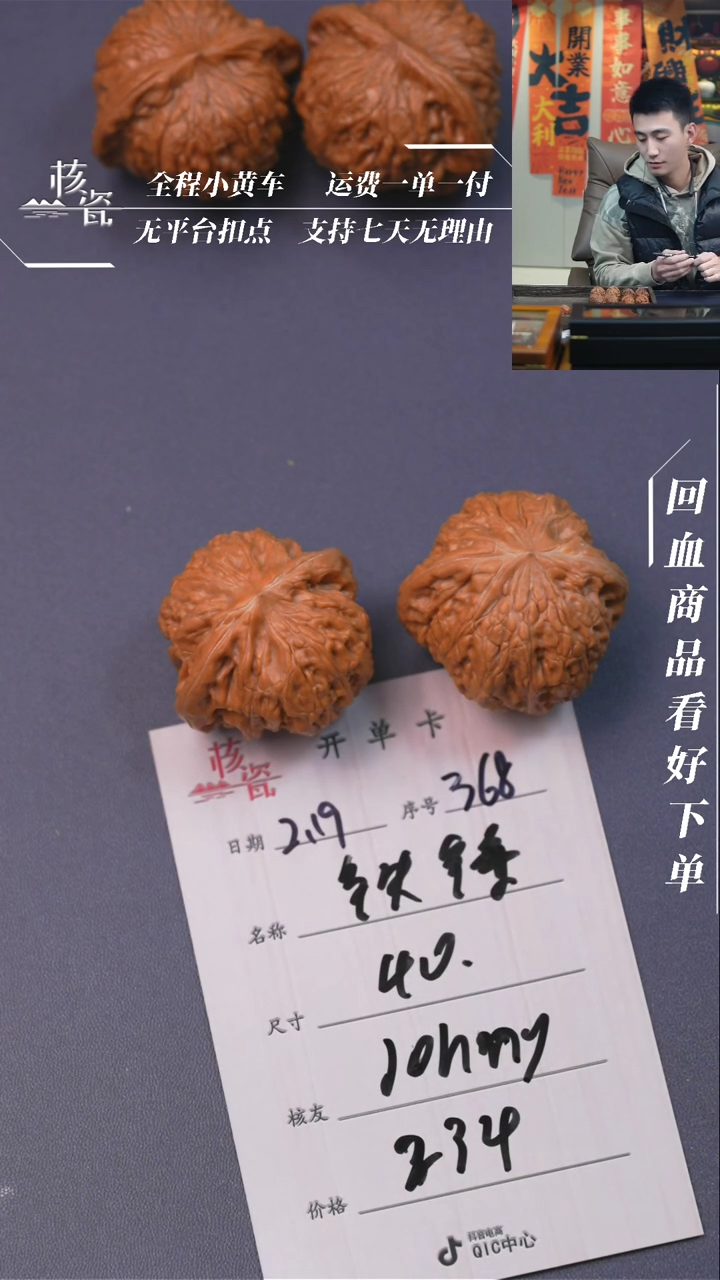 核瓷
全程小黄车 运费一单一付
无平台扣点 支持七天无理由
開業
大吉
大利
事事如意
财
回血商品看好下单
核瓷
开单卡
日期 2.19 序号 368
名称 铁锤
尺寸 40.
核友 Johnny
价格 234
抖音电商
QIC中心